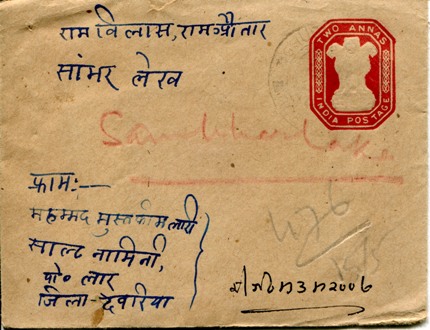 राम विलास, राम औतार
सांभर लेख
TWO ANNAS
INDIA POSTAGE
Sambhar Lake
फ्राम:—
महम्मद मुस्तकीम लारी
साल्ट नामिनी,
पो० लार
जिला-देवरिया
476